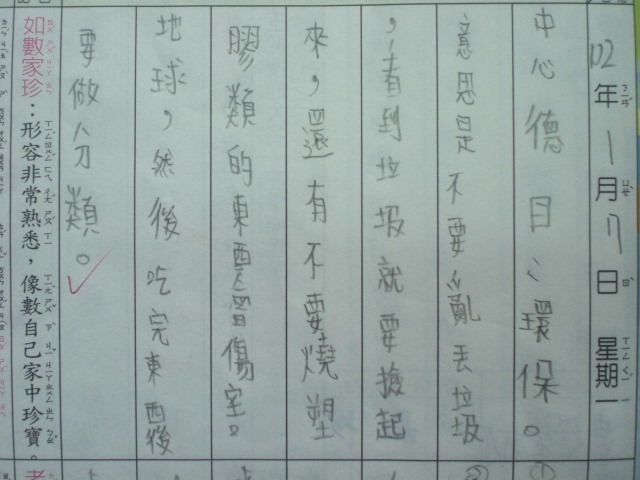 102年1月7日 星期一
中心德目:環保。
意思是不要亂丟垃圾
,看到垃圾就要撿起
來,還有不要燒塑
膠類的東西會傷害
地球,然後吃完東西後
要做分類。
如數家珍:形容非常熟悉,像數自己家中珍寶。